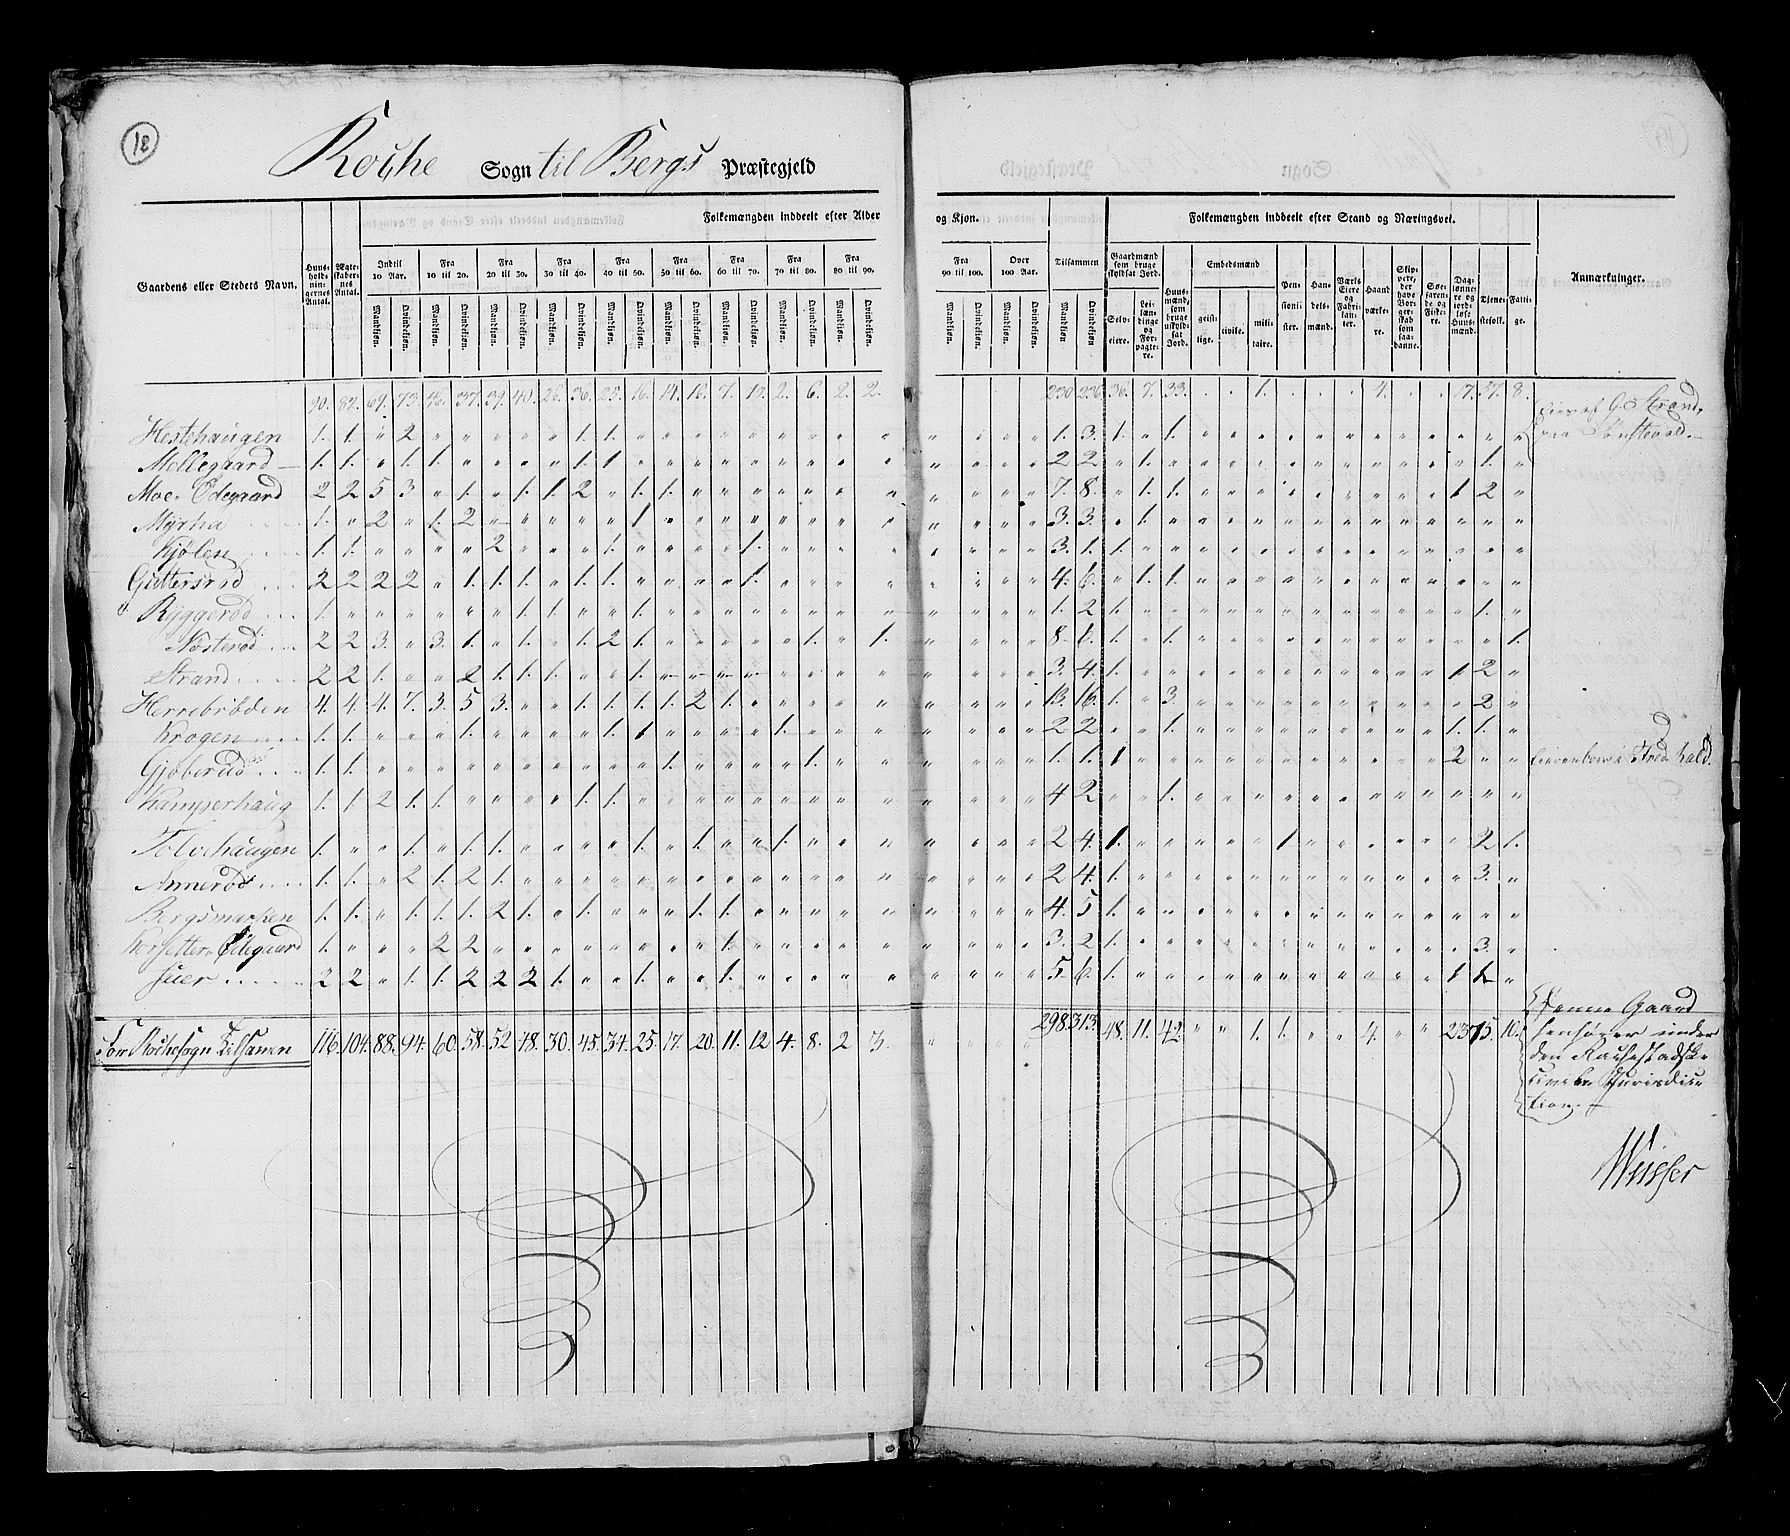 18
Rochе Sogn til Bergs Præstegjeld
Folkemængden inddeelt efter Alder og Kjøn.
Folkemængden inddeelt efter Stand og Næringsvei.
Gaardens eller Stedets Navn.
Huus-holdnin-gernes Antal.
Ægte-skaber-nes Antal.
Indtil 10 Aar.
Fra 10 til 20.
Fra 20 til 30.
Fra 30 til 40.
Fra 40 til 50.
Fra 50 til 60.
Fra 60 til 70.
Fra 70 til 80.
Fra 80 til 90.
Fra 90 til 100.
Over 100 Aar.
Tilsammen
Mandkjøn. Qvindekjøn.
Gaardmænd som bruge skyldsat Jord.
Selv-eiere.
Lei-læn-dinge og For-pagte-re.
Huus-mænd, som bruge uskyld-sat Jord.
Embedsmænd
geist-lige.
civile.
mili-taire.
Pen-sioni-ster.
Han-dels-mænd.
Værks Eiere og Fabri-kan-ter.
Haand værke-re.
Skip-pere, der have Bor-ger-skab som saa-danne.
Søe-faren-de og Fiske-re.
Dag-lønne-re og jord-løse Huus-mænd.
Tjene-stefolk.
Fatti-ge.
Anmærkninger.
90. 82. 69. 73. 46. 37. 39. 40. 26. 36. 25. 16. 14. 16. 7. 10. 2. 6. 2. 2. 230 236 36. 7. 33. 1. 4. 17. 37. 8.
Hestehaugen 1. 1. 2 1. 1. 1. 3. 1. 1.
Eies af G. Strand,
Møllegaard 1. 1. 1. 1. 1. 1 2 2. 1. 1.
Moe Ødegaard 2 2 5 3 1. 1. 1 2 1. 1. 7. 8. 1. 1. 1 2
Myrha 1. 2 1. 2 1. 3. 3. 1.
Kjølen 1. 1. 2 1. 1. 3. 1. 1.
Guttersrød 2 2 2 2 1. 1. 1. 1. 1. 1. 4. 6. 1. 1.
Ryggerød 1. 1. 1. 1. 1. 2 1. 1.
Nøsterød 2 2 3. 3. 1. 1. 1. 2 1. 1. 1. 8. 6. 1. 1. 1.
Strand 2 2 1. 2 1. 1. 1. 1. 3. 4. 1. 1 2
Herrebröden 4. 4. 4. 7. 3. 5 3. 1. 1. 1. 1. 2 1. 13. 16. 1. 3. 2
Krogen 1. 1. 1. 1. 1 1. 2 2 1. 1. 1.
Gjøberud 1. 1. 1. 1. 1. 1. 1 2
Kamperhaug 1. 1. 2 1. 1. 1. 1. 4 2 1.
Tolvehaugen 1. 1. 1. 1. 1. 1. 1. 2 4. 1. 1 2 1.
Annerød 1. 1. 2 1. 2 1. 2 4. 1. 3.
Bergsmarken 1. 1. 1. 1. 1. 2 1. 1. 1. 1. 4. 5 1.
Korsetter Ødegaard 1. 2 2 1. 3. 2 1. 3.
Juer 2 2 1. 1. 2 2 2 1. 1. 1. 5 6. 1. 1 1.
For Rochesogn Tilsamen 116. 104. 88. 94. 60. 58. 52 48. 30. 45. 34. 25. 17. 20. 11. 12 4. 8. 2 3. 298. 313. 48. 11. 42. 1. 1. 4. 23 75. 10.
Denne Gaard
henhører under
den
civile Jurisdic-
tion.